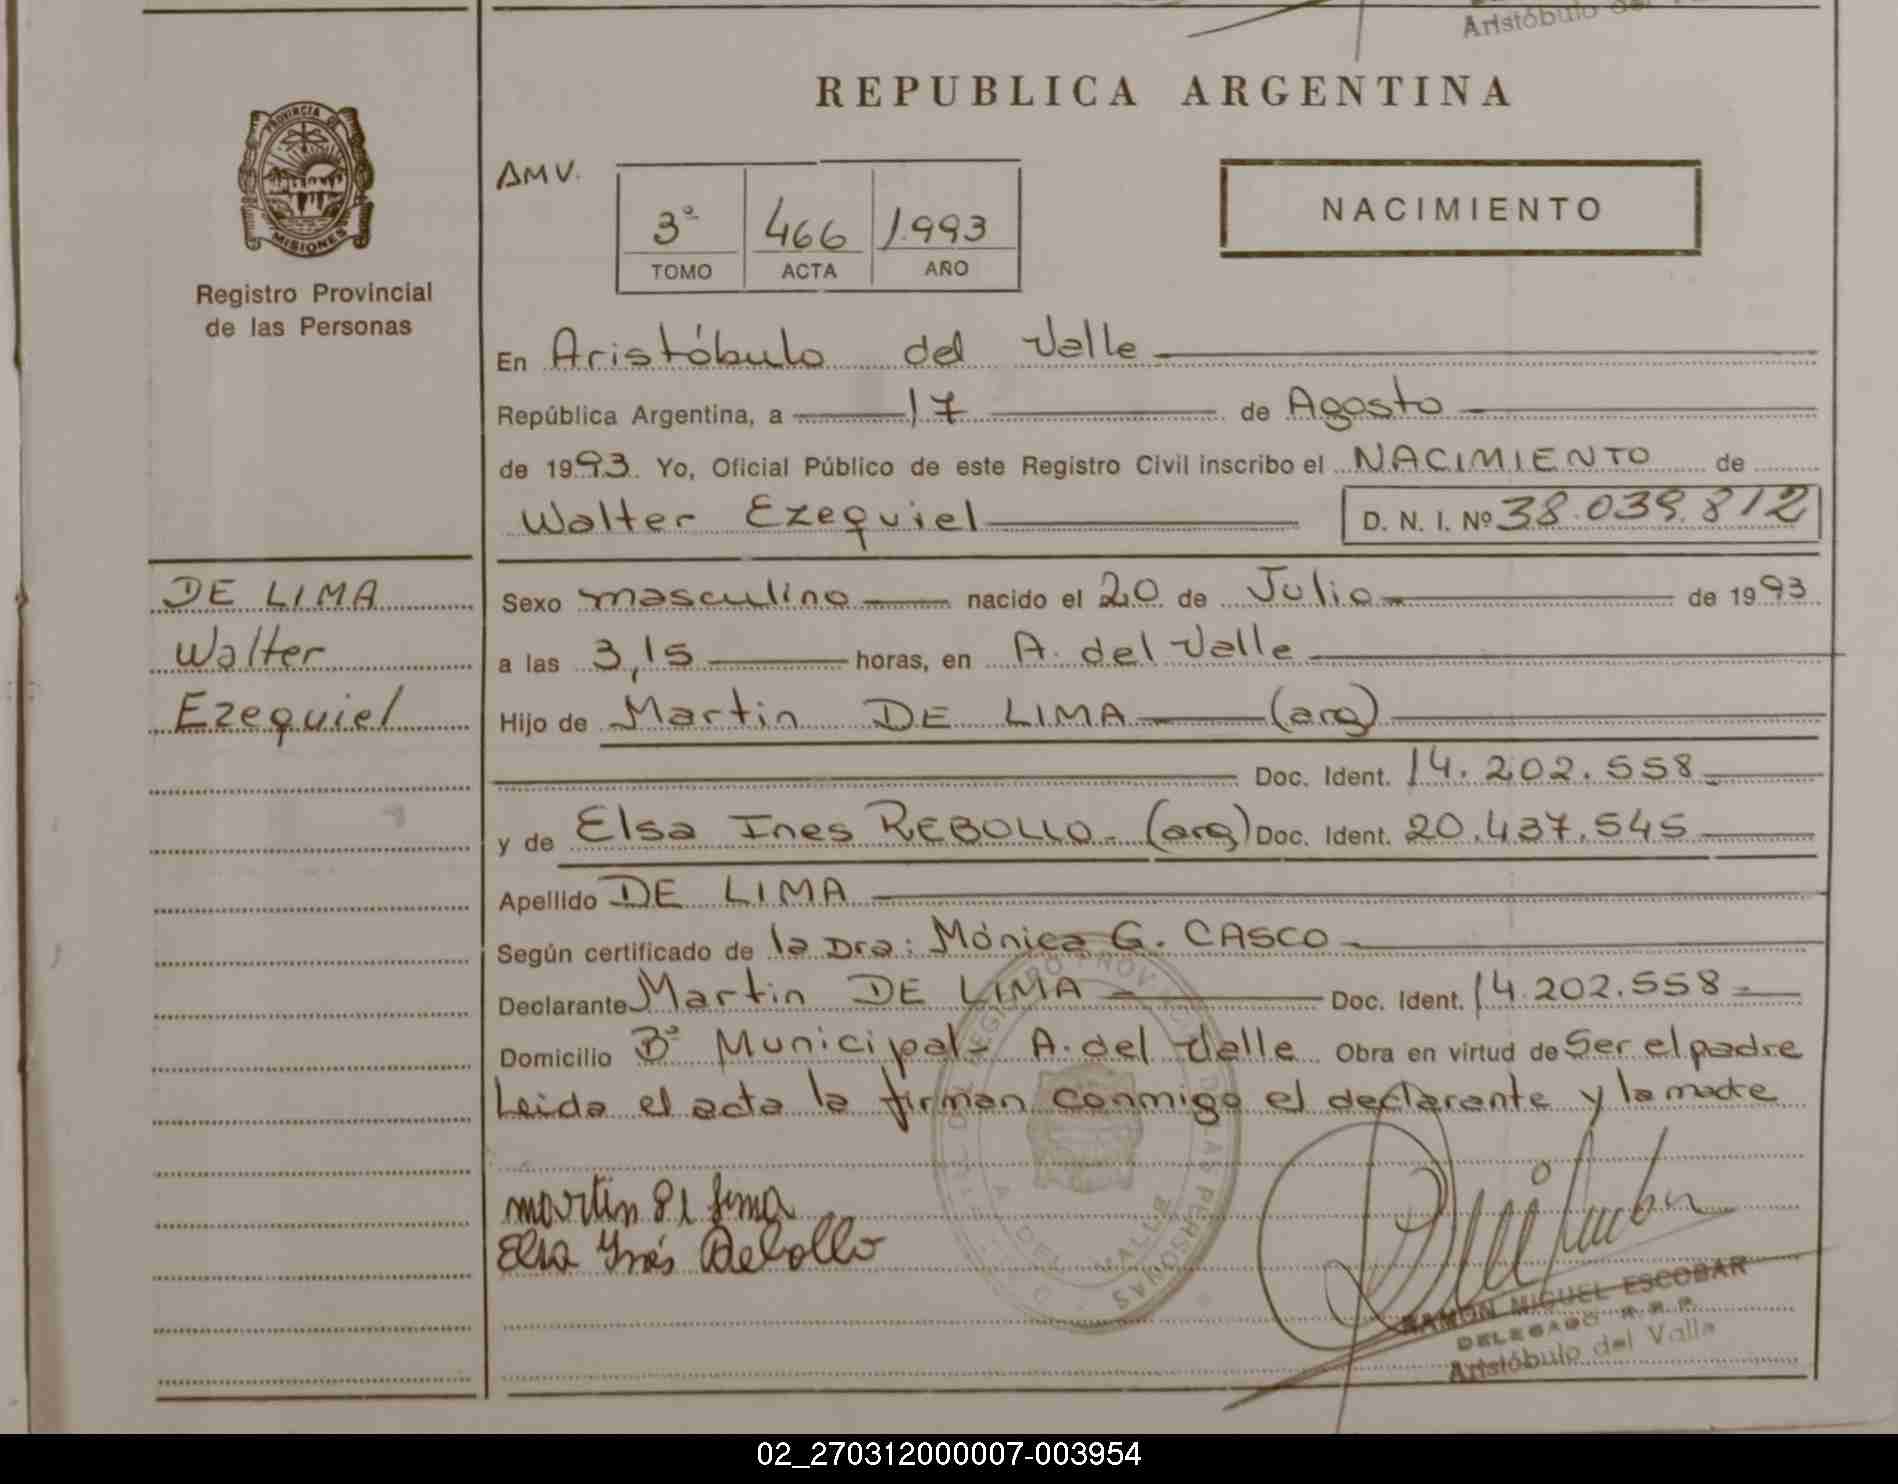 Aristóbulo del Valle
REPUBLICA ARGENTINA
PROVINCIA DE
MISIONES
Registro Provincial
de las Personas
AMV.
3º 466 1.993
TOMO ACTA AÑO
NACIMIENTO
En Aristóbulo del Valle
República Argentina, a 17 de Agosto
de 1993. Yo, Oficial Público de este Registro Civil inscribo el NACIMIENTO de
Walter Ezequiel D. N. I. Nº 38.039.812
DE LIMA
Walter
Ezequiel
Sexo masculino nacido el 20 de Julio de 1993
a las 3,15 horas, en A. del Valle
Hijo de Martin DE LIMA (arg)
Doc. Ident. 14.202.558
y de Elsa Ines REBOLLO (arg) Doc. Ident. 20.437.545
Apellido DE LIMA
Según certificado de la Dra: Mónica G. CASCO
Declarante Martin DE LIMA Doc. Ident. 14.202.558
Domicilio Bº Municipal - A. del Valle Obra en virtud de Ser el padre
Leida el acta la firman conmigo el declarante y la madre
martin de lima
Elsa Inés Rebollo
RAMON MIGUEL ESCOBAR
DELEGADO R.R.P.
Aristóbulo del Valle
02_270312000007-003954